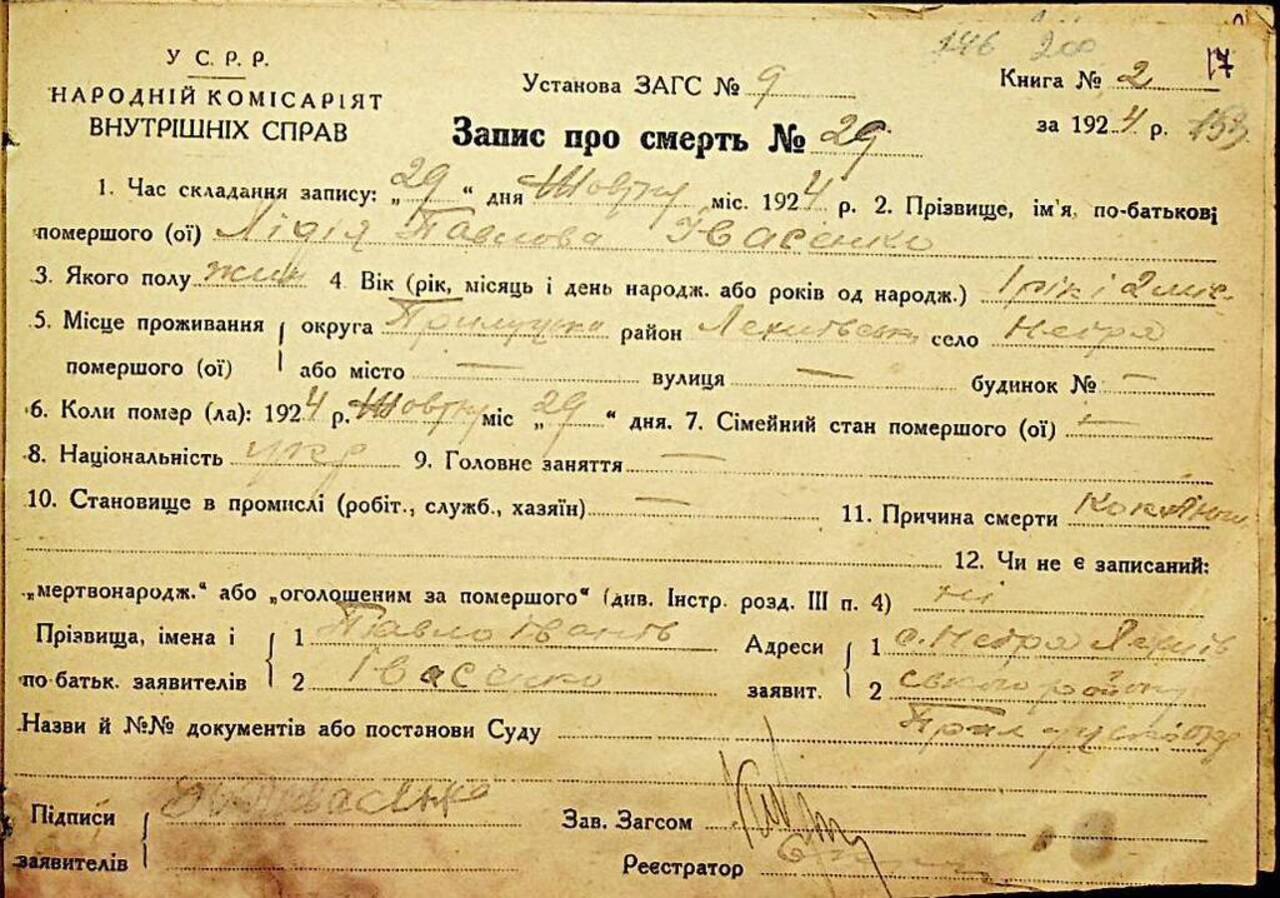 146 200
17
У С. Р. Р.
НАРОДНІЙ КОМІСАРІЯТ
ВНУТРІШНІХ СПРАВ
Установа ЗАГС № 9
Книга № 2
за 1924 р. 153
Запис про смерть № 29
1. Час складання запису: „29" дня Жовтня міс. 1924 р. 2. Прізвище, ім'я, по-батькові
помершого (ої) Лідія Павлова Івасенко
3. Якого полу жин 4 Вік (рік, місяць і день народж. або років од народж.) 1 рік і 2 міс.
5. Місце проживання округа Прилуцька район село Петра
помершого (ої) або місто — вулиця — будинок № —
6. Коли помер (ла): 1924 р. Жовтня міс „29" дня. 7. Сімейний стан помершого (ої) —
8. Національність укр 9. Головне заняття —
10. Становище в промислі (робіт., служб., хазяїн) — 11. Причина смерти
12. Чи не є записаний:
„мертвонародж." або „оголошеним за помершого" (див. Інстр. розд. III п. 4) ні
Прізвища, імена і 1 Павло Іванів Адреси 1 с.
по батьк. заявителів 2 Івасенко заявит. 2 ського району
Назви й №№ документів або постанови Суду
Підписи
заявителів
Зав. Загсом
Реєстратор